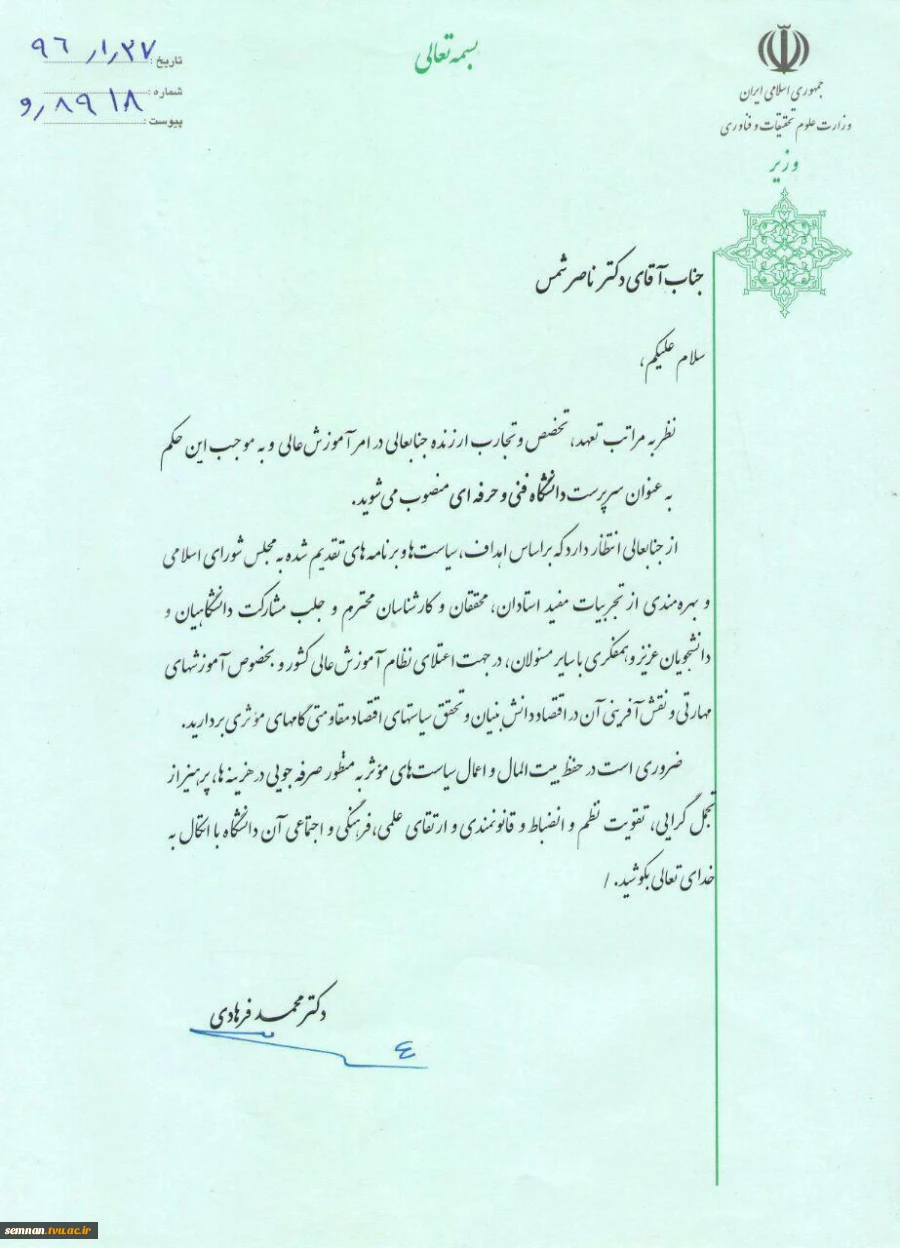 بسمه تعالی
جمهوری اسلامی ایران
وزارت علوم تحقیقات و فناوری
وزیر
تاریخ: ۹۶/۱/۲۷
شماره: ۸۹۱۸/و
پیوست:
جناب آقای دکتر ناصر شمس
سلام علیکم،
نظر به مراتب تعهد، تخصص و تجارب ارزنده جنابعالی در امر آموزش عالی و به موجب این حکم
به عنوان سرپرست دانشگاه فنی و حرفه ای منصوب می شوید.
از جنابعالی انتظار دارد که براساس اهداف، سیاست ها و برنامه های تقدیم شده به مجلس شورای اسلامی
و بهره مندی از تجربیات مفید استادان، محققان و کارشناسان محترم و جلب مشارکت دانشگاهیان و
دانشجویان عزیز و همفکری با سایر مسئولان، در جهت اعتلای نظام آموزش عالی کشور و بخصوص آموزشهای
مهارتی و نقش آفرینی آن در اقتصاد دانش بنیان و تحقق سیاستهای اقتصاد مقاومتی گامهای مؤثری بردارید.
ضروری است در حفظ بیت المال و اعمال سیاست های مؤثر به منظور صرفه جویی در هزینه ها، پرهیز از
تجمل گرایی، تقویت نظم و انضباط و قانونمندی و ارتقای علمی، فرهنگی و اجتماعی آن دانشگاه با اتکال به
خدای تعالی بکوشید. /
دکتر محمد فرهادی
semnan.tvu.ac.ir